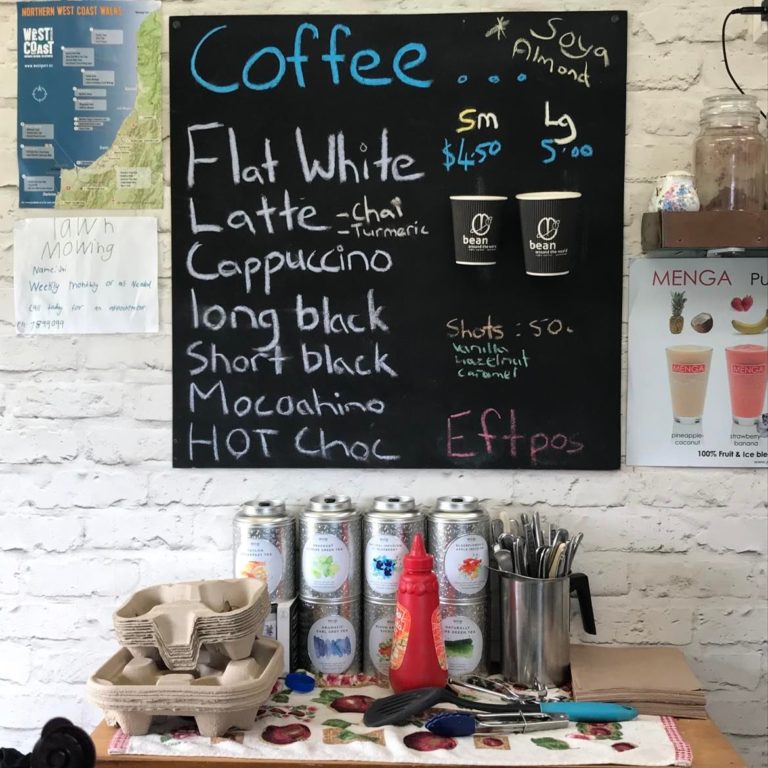 NORTHERN WEST COAST WALKS
WEST
COAST
Coffee...
* Soya
Almond
Sm Lg
$4.50 5.00
Flat White
Latte - Chai
- Turmeric
Cappuccino
long black
Short black
Mocoahino
HOT Choc
bean
around the world
bean
around the world
Shots : 50.
Vanilla
Hazelnut
Caramel
Eftpos
lawn
Mowing
Weekly monthly or as Needed
Call today for an appointment
MENGA Pu
MENGA
MENGA
pineapple
coconut
strawberry
banana
100% Fruit & Ice ble
EARL GREY TEA
NATURALLY
GREEN TEA